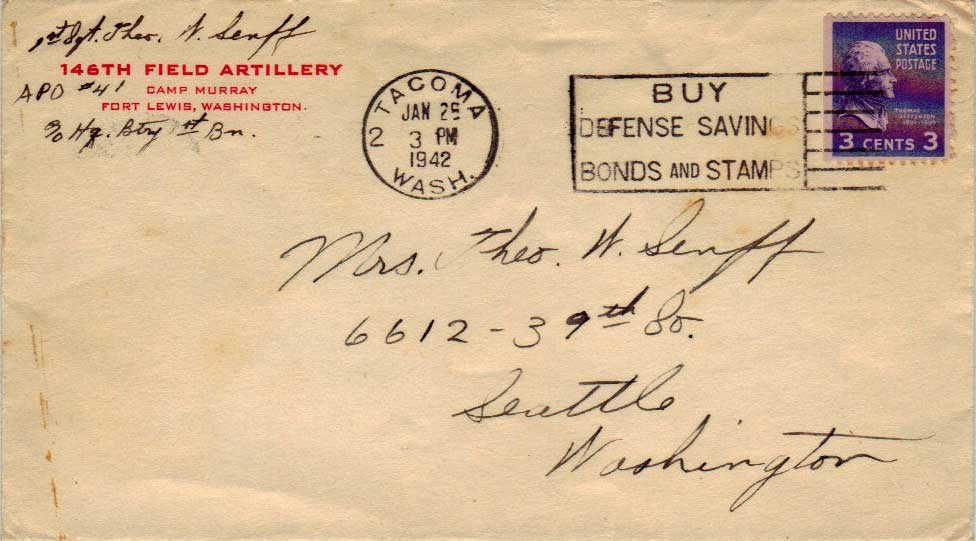 1st Sgt. Theo. W. Senff
146TH FIELD ARTILLERY
APO #41
CAMP MURRAY
FORT LEWIS, WASHINGTON.
c/o Hq. Btry 1st Bn.
TACOMA
JAN 26
2 3 PM
1942
WASH.
BUY
DEFENSE SAVINGS
BONDS AND STAMPS
UNITED
STATES
POSTAGE
THOMAS
JEFFERSON
1801-1809
3 CENTS 3
Mrs. Theo. W. Senff
6612-39th So.
Seattle
Washington